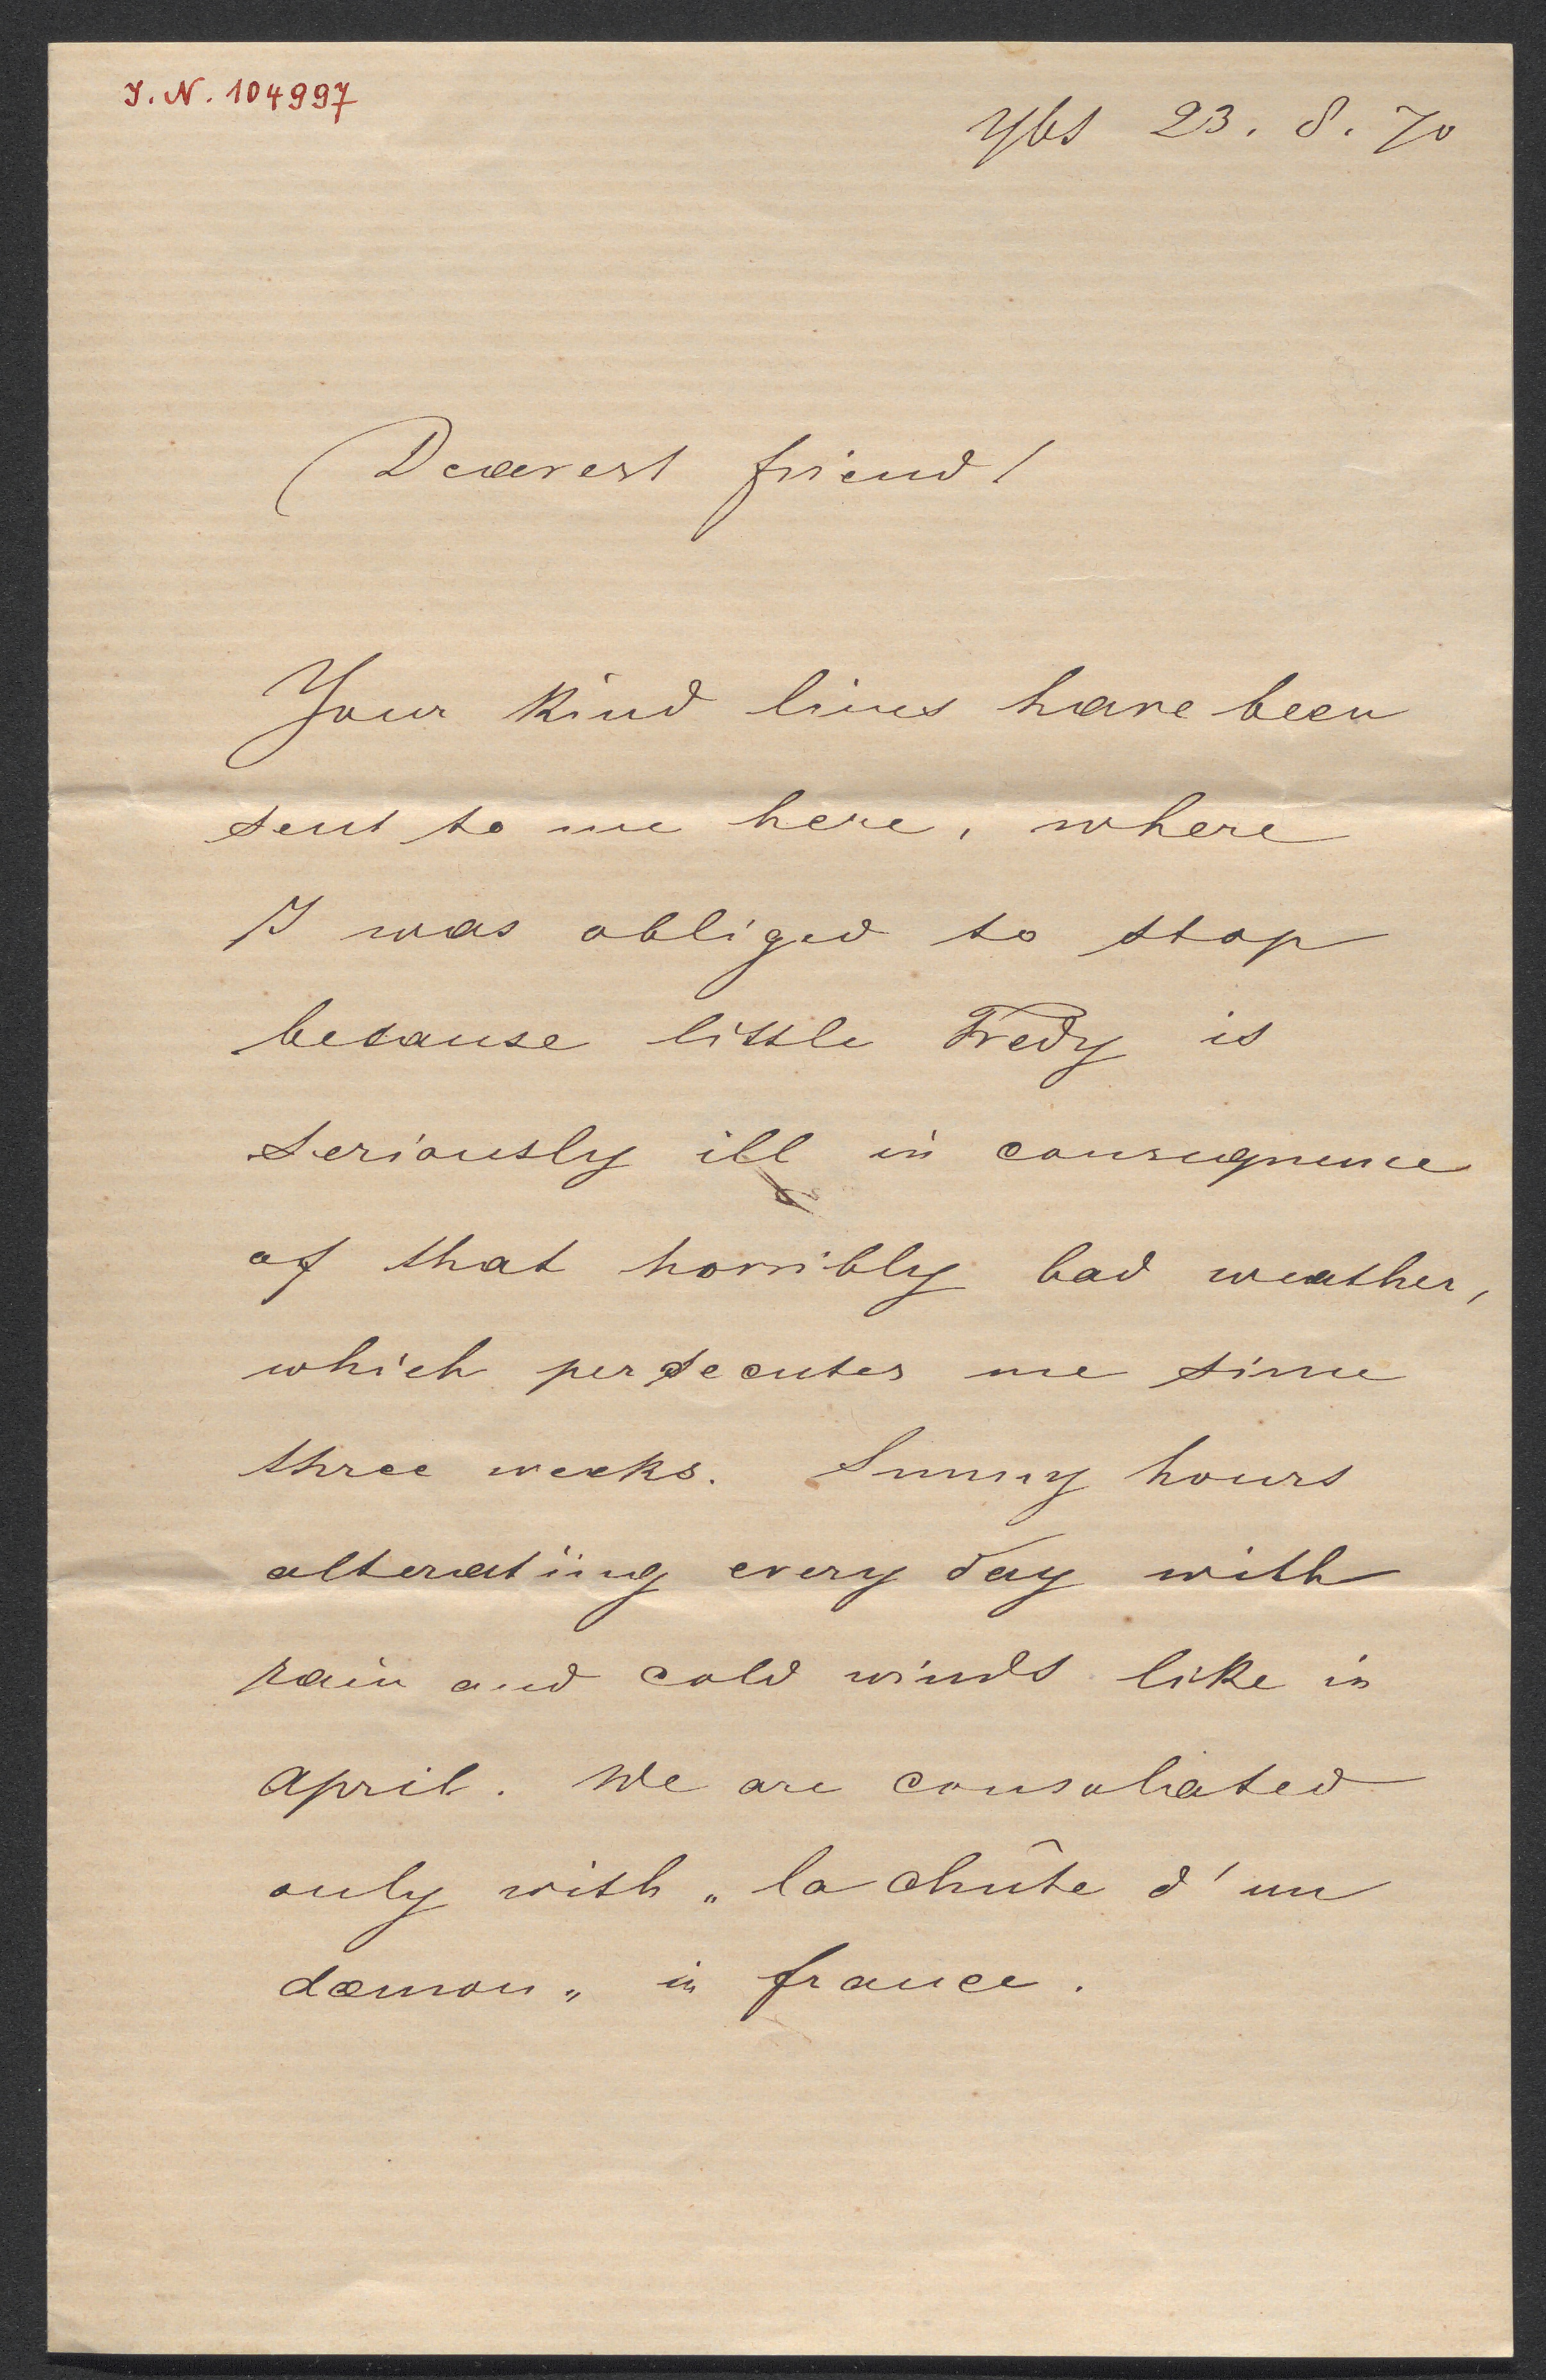 J. N. 104997
Ybs 23. 8. 70
Dearest friend!
Your kind lines have been
sent to me here, where
I was obliged to stop
because little Fredy is
seriously ill in consequence
of that horribly bad weather,
which persecutes me since
three weeks. Sunny hours
alterating every day with
rain and cold winds like in
April. We are consolated
only with „la chûte d'un
dæmon„ in france.